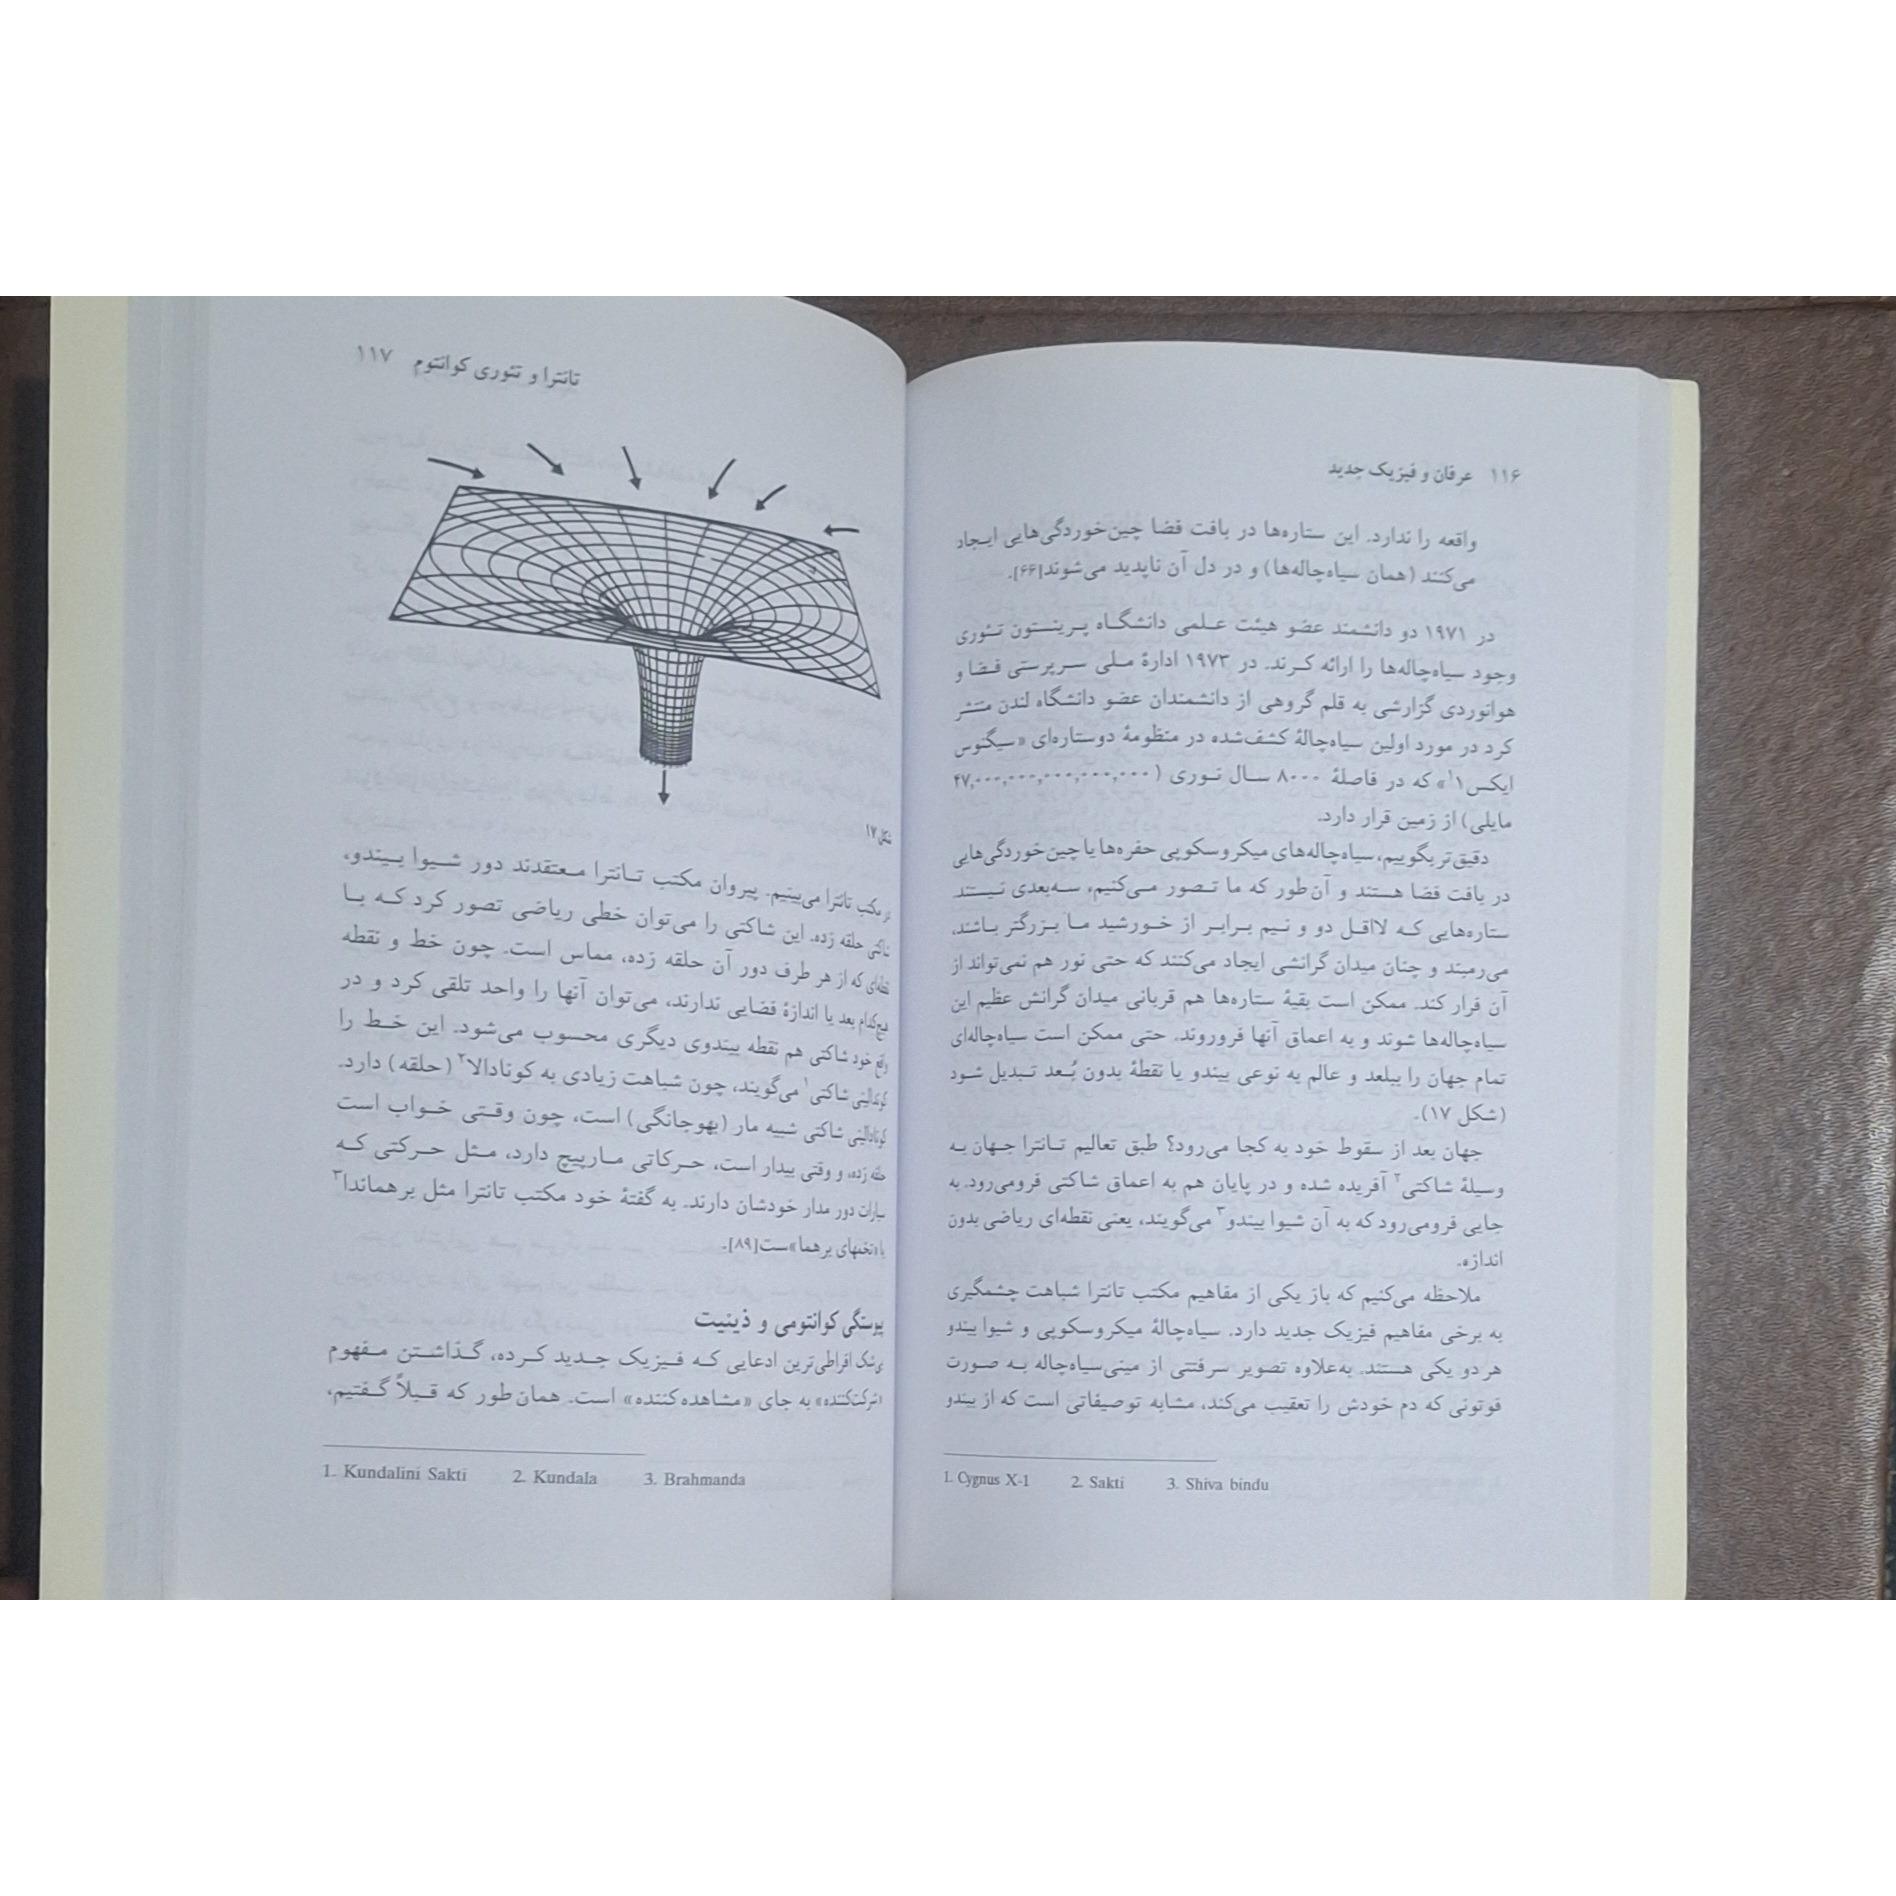 ۱۱۶ عرفان و فیزیک جدید
واقعه را ندارد. این ستاره‌ها در بافت فضا چین‌خوردگی‌هایی ایجاد
می‌کنند (همان سیاه‌چاله‌ها) و در دل آن ناپدید می‌شوند[۶۶].
در ۱۹۷۱ دو دانشمند عضو هیئت علمی دانشگاه پرینستون تئوری
وجود سیاه‌چاله‌ها را ارائه کرند. در ۱۹۷۳ ادارهٔ ملی سرپرستی فضا و
هوانوردی گزارشی به قلم گروهی از دانشمندان عضو دانشگاه لندن منتشر
کرد در مورد اولین سیاه‌چالهٔ کشف‌شده در منظومهٔ دوستاره‌ای «سیگنوس
ایکس۱۱» که در فاصلهٔ ۸۰۰۰ سال نوری (۴۷,۰۰۰,۰۰۰,۰۰۰,۰۰۰,۰۰۰
مایلی) از زمین قرار دارد.
دقیق‌تر بگوییم، سیاه‌چاله‌های میکروسکوپی حفره‌ها یا چین‌خوردگی‌هایی
در بافت فضا هستند و آن‌طور که ما تصور می‌کنیم، سه‌بعدی نیستند.
ستاره‌هایی که لااقل دو و نیم برابر از خورشید ما بزرگتر باشند،
می‌رمبند و چنان میدان گرانشی ایجاد می‌کنند که حتی نور هم نمی‌تواند از
آن فرار کند. ممکن است بقیهٔ ستاره‌ها هم قربانی میدان گرانش عظیم این
سیاه‌چاله‌ها شوند و به اعماق آنها فروروند. حتی ممکن است سیاه‌چاله‌ای
تمام جهان را ببلعد و عالم به نوعی بیندو یا نقطهٔ بدون بُعد تبدیل شود
(شکل ۱۷).
جهان بعد از سقوط خود به کجا می‌رود؟ طبق تعالیم تانترا جهان به
وسیلهٔ شاکتی۲ آفریده شده و در پایان هم به اعماق شاکتی فرومی‌رود. به
جایی فرومی‌رود که به آن شیوا بیندو۳ می‌گویند، یعنی نقطه‌ای ریاضی بدون
اندازه.
ملاحظه می‌کنیم که باز یکی از مفاهیم مکتب تانترا شباهت چشمگیری
به برخی مفاهیم فیزیک جدید دارد. سیاه‌چالهٔ میکروسکوپی و شیوا بیندو
هر دو یکی هستند. به‌علاوه تصویر سرفتتی از مینی‌سیاه‌چاله به صورت
فوتونی که دم خودش را تعقیب می‌کند، مشابه توصیفاتی است که از بیندو
1. Cygnus X-1 2. Sakti 3. Shiva bindu
تانترا و تئوری کوانتوم ۱۱۷
شکل ۱۷
در مکتب تانترا می‌بینیم. پیروان مکتب تانترا معتقدند دور شیوا بیندو،
شاکتی حلقه زده. این شاکتی را می‌توان خطی ریاضی تصور کرد که با
نقطه‌ای که از هر طرف دور آن حلقه زده، مماس است. چون خط و نقطه
هیچ‌کدام بعد یا اندازهٔ فضایی ندارند، می‌توان آنها را واحد تلقی کرد و در
واقع خود شاکتی هم نقطه بیندوی دیگری محسوب می‌شود. این خط را
کوندالینی شاکتی۱ می‌گویند، چون شباهت زیادی به کوندالا۲ (حلقه) دارد.
کوندالینی شاکتی شبیه مار (بهوجانگی) است، چون وقتی خواب است
حلقه زده، و وقتی بیدار است، حرکاتی مارپیچ دارد، مثل حرکتی که
سیارات دور مدار خودشان دارند. به گفتهٔ خود مکتب تانترا مثل برهماندا۳
یا «تخمهای برهما»ست[۸۹].
پیوستگی کوانتومی و ذینیت
بی‌شک افراطی‌ترین ادعایی که فیزیک جدید کرده، گذاشتن مفهوم
«شرکت‌کننده» به جای «مشاهده‌کننده» است. همان‌طور که قبلاً گفتیم،
1. Kundalini Sakti 2. Kundala 3. Brahmanda